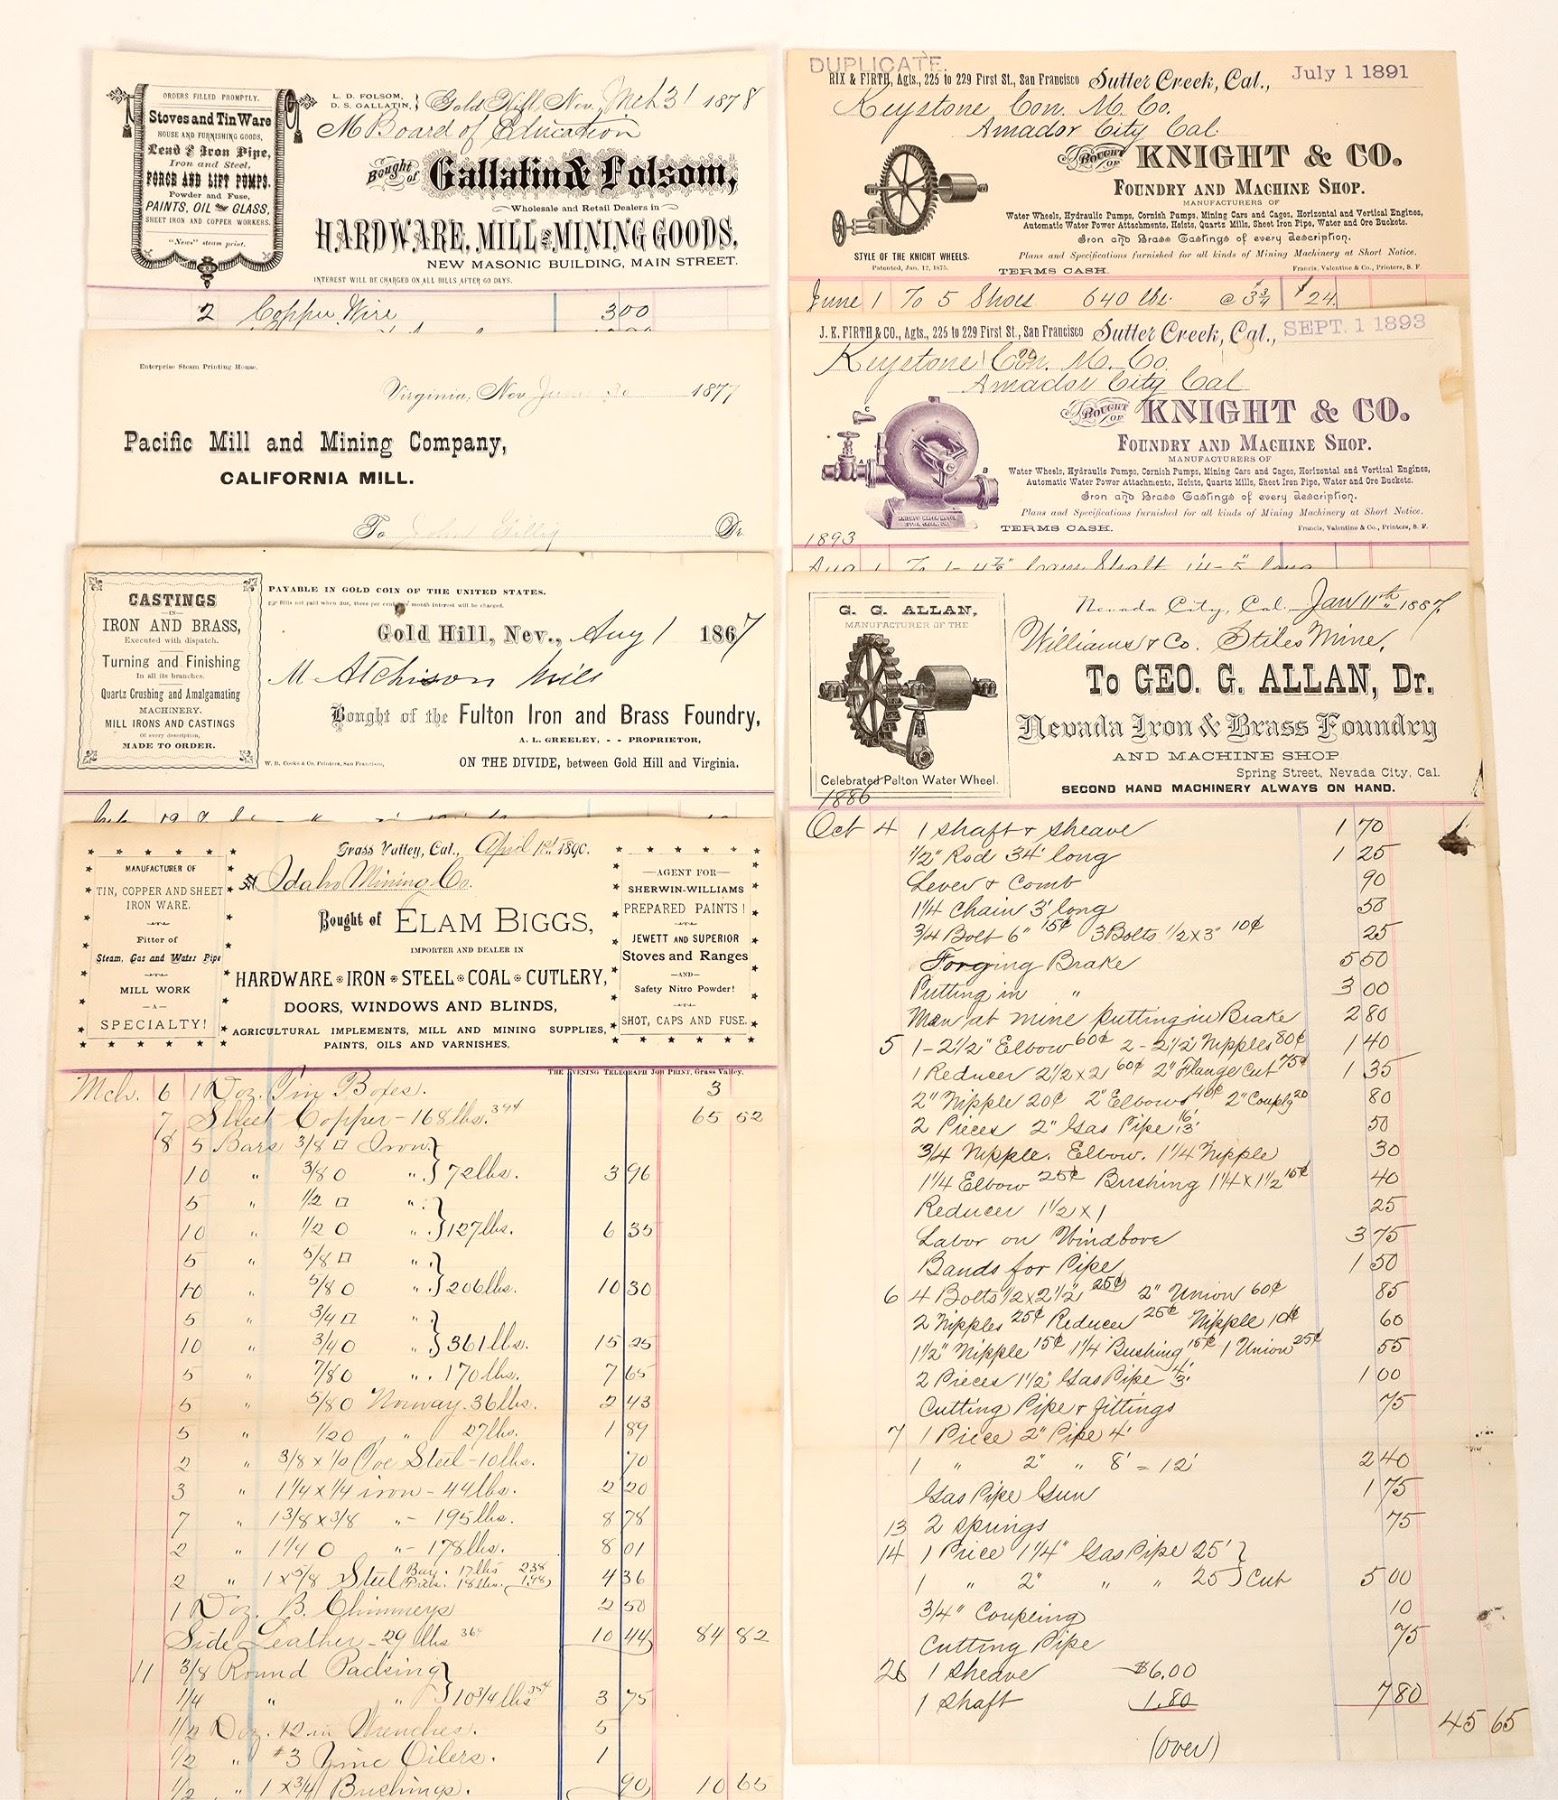 ORDERS FILLED PROMPTLY.
Stoves and Tin Ware
HOUSE AND FURNISHING GOODS,
Lead & Iron Pipe,
Iron and Steel,
FORCE AND LIFT PUMPS.
Powder and Fuse,
PAINTS, OIL GLASS,
SHEET IRON AND COPPER WORKERS.
"News" steam print.
L. D. FOLSOM,
D. S. GALLATIN,
Gold Hill, Nov. Mch 31 1878
M Board of Education
Bought of Gallatin & Folsom,
Wholesale and Retail Dealers in
HARDWARE, MILL AND MINING GOODS,
NEW MASONIC BUILDING, MAIN STREET.
INTEREST WILL BE CHARGED ON ALL BILLS AFTER 60 DAYS.
2 Copper Wire 3 00
Enterprise Steam Printing House.
Virginia, Nov June 30 1877
Pacific Mill and Mining Company,
CALIFORNIA MILL.
To John Gillig Dr
CASTINGS
IN
IRON AND BRASS,
Executed with dispatch.
Turning and Finishing
In all its branches.
Quartz Crushing and Amalgamating
MACHINERY.
MILL IRONS AND CASTINGS
Of every description,
MADE TO ORDER.
PAYABLE IN GOLD COIN OF THE UNITED STATES.
Bills not paid when due, three per cent month interest will be charged.
Gold Hill, Nev., Aug 1 1867
M Atchison Mill
Bought of the Fulton Iron and Brass Foundry,
A. L. GREELEY, - - PROPRIETOR,
W. B. Cooke & Co. Printers, San Francisco,
ON THE DIVIDE, between Gold Hill and Virginia.
19
MANUFACTURER OF
TIN, COPPER AND SHEET
IRON WARE.
Fitter of
Steam, Gas and Water Pipe
MILL WORK
—A—
SPECIALTY!
Grass Valley, Cal., April 1st 1890.
Idaho Mining Co.
Bought of ELAM BIGGS,
IMPORTER AND DEALER IN
HARDWARE IRON STEEL COAL CUTLERY,
DOORS, WINDOWS AND BLINDS,
AGRICULTURAL IMPLEMENTS, MILL AND MINING SUPPLIES,
PAINTS, OILS AND VARNISHES.
—AGENT FOR—
SHERWIN-WILLIAMS
PREPARED PAINTS!
JEWETT AND SUPERIOR
Stoves and Ranges
—AND—
Safety Nitro Powder!
SHOT, CAPS AND FUSE.
THE EVENING TELEGRAPH JOB PRINT, Grass Valley.
Mch. 6 1 Doz. Tin Boxes. 3
7 Sheet Copper - 168 lbs. 39¢ 65 52
8 5 Bars 3/8 □ Iron.
10 " 3/8 O " 72 lbs. 3 96
5 " 1/2 □ "
10 " 1/2 O " 127 lbs. 6 35
5 " 5/8 □ "
10 " 5/8 O " 206 lbs. 10 30
5 " 3/4 □ "
10 " 3/4 O " 361 lbs. 15 25
5 " 7/8 O " 170 lbs. 7 65
5 " 5/8 O Norway. 36 lbs. 2 43
5 " 1/2 O " 27 lbs. 1 89
2 " 3/8 x Steel - 10 lbs. 70
3 " 1 1/4 x 1/4 iron - 44 lbs. 2 20
7 " 1 3/8 x 3/8 " - 195 lbs. 8 78
2 " 1 1/4 O " - 178 lbs. 8 01
2 " 1 x 5/8 Steel 17 lbs 2.38 18 lbs. 1.98 4 36
1 Doz. B. Chimneys 2 50
Side Leather - 29 lbs 36¢ 10 44 84 82
11 3/8 Round Packing
1/4 " " 10 3/4 lbs 35¢ 3 75
1/2 Doz. 12 in Wrenches. 5
1/2 " #3 Zinc Oilers. 1
1/2 " 1 x 3/4 Bushings. 90 10 65
DUPLICATE
RIX & FIRTH, Agts., 225 to 229 First St., San Francisco Sutter Creek, Cal., July 1 1891
Keystone Con. M. Co.
Amador City Cal
BOUGHT OF KNIGHT & CO.
FOUNDRY AND MACHINE SHOP.
MANUFACTURERS OF
Water Wheels, Hydraulic Pumps, Cornish Pumps, Mining Cars and Cages, Horizontal and Vertical Engines,
Automatic Water Power Attachments, Hoists, Quartz Mills, Sheet Iron Pipe, Water and Ore Buckets.
Iron and Brass Castings of every description.
STYLE OF THE KNIGHT WHEELS.
Patented, Jan. 12, 1875.
Plans and Specifications furnished for all kinds of Mining Machinery at Short Notice.
TERMS CASH. Francis, Valentine & Co., Printers, S. F.
June 1 To 5 Shoes 640 lbs. @ 3 3/4 $24
J. K. FIRTH & CO., Agts., 225 to 229 First St., San Francisco Sutter Creek, Cal., SEPT. 1 1893
Keystone Con. M. Co.
Amador City Cal
BOUGHT OF KNIGHT & CO.
FOUNDRY AND MACHINE SHOP.
MANUFACTURERS OF
Water Wheels, Hydraulic Pumps, Cornish Pumps, Mining Cars and Cages, Horizontal and Vertical Engines,
Automatic Water Power Attachments, Hoists, Quartz Mills, Sheet Iron Pipe, Water and Ore Buckets.
Iron and Brass Castings of every description.
Plans and Specifications furnished for all kinds of Mining Machinery at Short Notice.
TERMS CASH. Francis, Valentine & Co., Printers, S. F.
1893
Aug 1 To 1-
G. G. ALLAN,
MANUFACTURER OF THE
Celebrated Pelton Water Wheel.
Nevada City, Cal. Jan 11th 1887.
Williams & Co. Stiles Mine,
To GEO. G. ALLAN, Dr.
Nevada Iron & Brass Foundry
AND MACHINE SHOP
Spring Street, Nevada City, Cal.
SECOND HAND MACHINERY ALWAYS ON HAND.
1886
Oct 4 1 Shaft & Sheave 1 70
1/2" Rod 34' long 1 25
Lever & Comb 90
1 1/4 Chain 3' long 50
3/4 Bolt 6" 15¢ 3 Bolts 1/2 x 3" 10¢ 25
Forging Brake 5 50
Putting in " 3 00
Man at mine putting in Brake 2 80
5 1 - 2 1/2" Elbow 60¢ 2 - 2 1/2" Nipples 80¢ 1 40
1 Reducer 2 1/2 x 2 60¢ 2" Flange Cut 75¢ 1 35
2" Nipple 20¢ 2" Elbows 40¢ 2" Couplg 20 80
2 Pieces 2" Gas Pipe 50
3/4 Nipple. Elbow. 1 1/4 Nipple 30
1 1/4 Elbow 25¢ Bushing 1 1/4 x 1 1/2 15¢ 40
Reducer 1 1/2 x 1 25
Labor on Windbove 3 75
Bands for Pipe 1 50
6 4 Bolts 1/2 x 2 1/2" 25¢ 2" Union 60¢ 85
2 Nipples 25¢ Reducer 25¢ Nipple 10¢ 60
1 1/2" Nipple 15¢ 1 1/4 Bushing 15¢ 1 Union 25¢ 55
2 Pieces 1 1/2" Gas Pipe 1 00
Cutting Pipe & fittings 75
7 1 Piece 2" Pipe 4'
1 " 2" " 8' = 12' 2 40
Gas Pipe Gun 1 75
13 2 springs 75
14 1 Piece 1 1/4" Gas Pipe 25'
1 " 2" " " 25 Cut 5 00
3/4" Coupling 10
Cutting Pipe 75
26 1 Sheave $6.00
1 Shaft 1.80 7 80
45 65
(over)